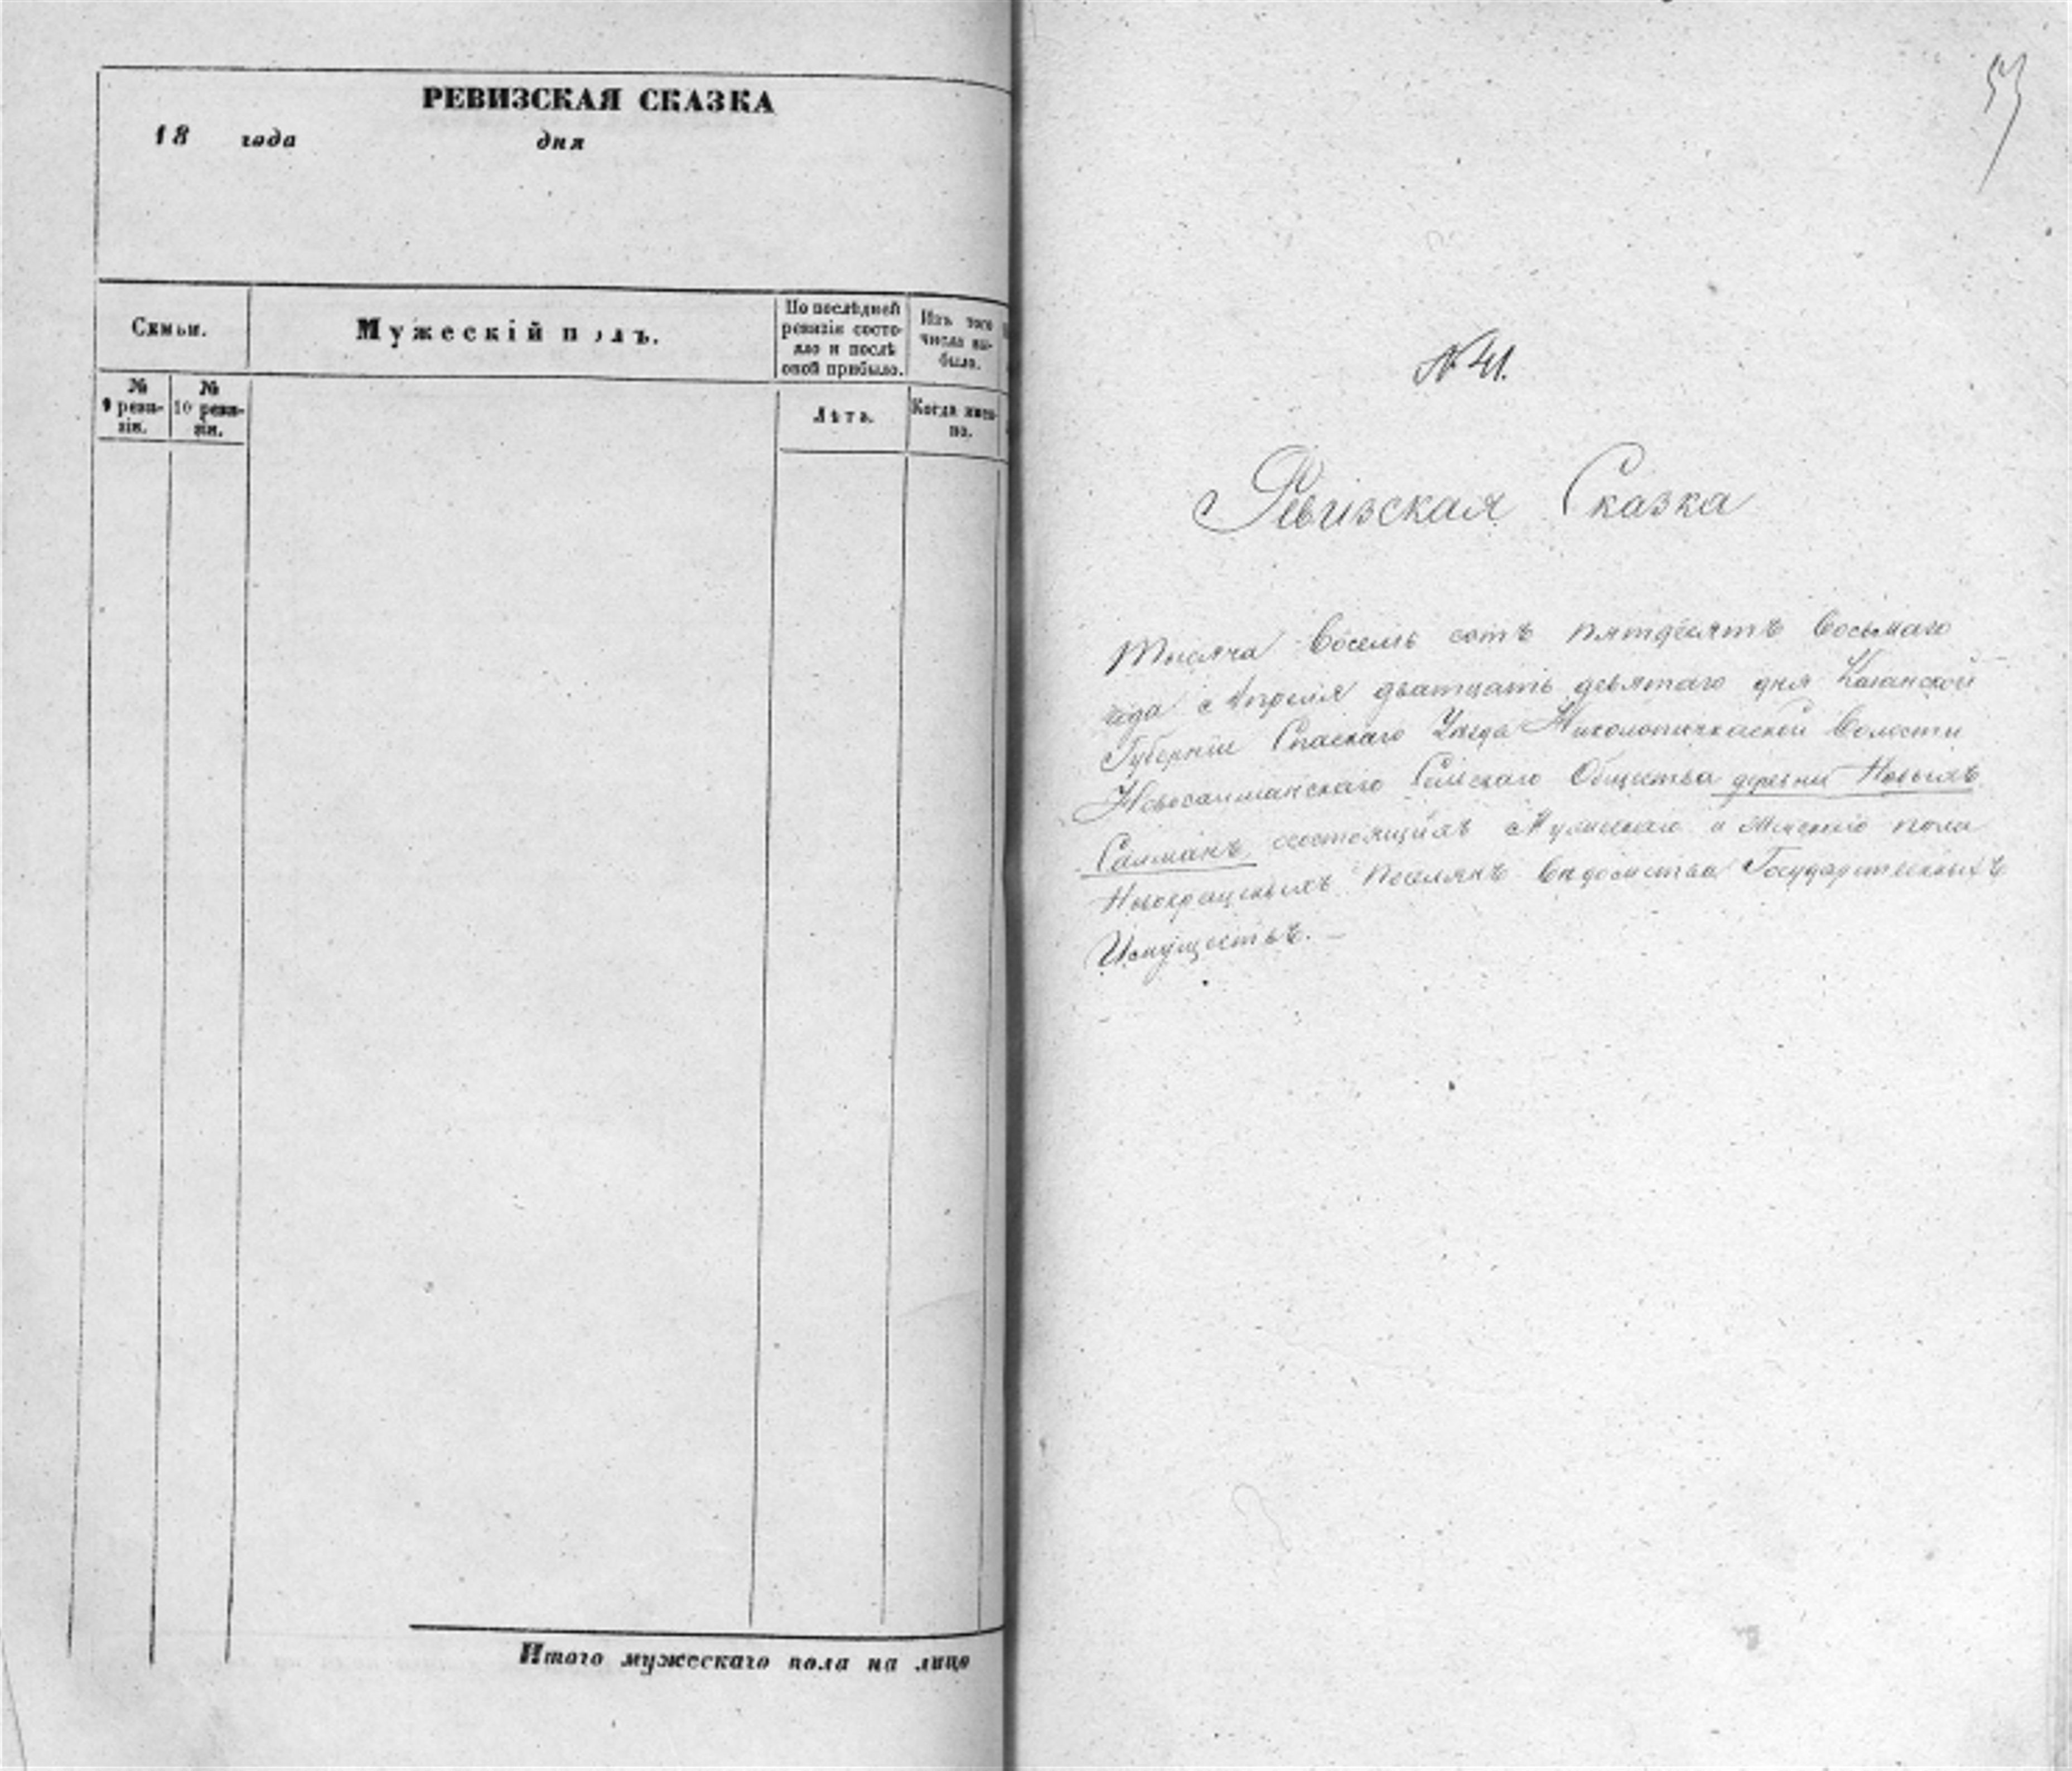 РЕВИЗСКАЯ СКАЗКА
18 года дня
Семьи.
Мужескій полъ.
По послѣдней
ревизіи состо-
яло и послѣ
оной прибыло.
Изъ того
числа вы-
было.
№
9 реви-
зіи.
№
10 реви-
зіи.
Лѣта.
Когда имен-
но.
Итого мужескаго пола на лицо
№ 41.
Ревизская Сказка
Тысяча Восемь сотъ пятдесятъ Восьмаго
года Апреля дватцать девятаго дня Казанской
Губерніи Спаскаго Уезда Волости
Новосалманскаго Сельскаго Общества деревни Новыхъ
Салманъ состоящихъ Мужескаго и Женскаго пола
Новокрещеныхъ поселянъ Ведомства Государственныхъ
Имуществъ. —